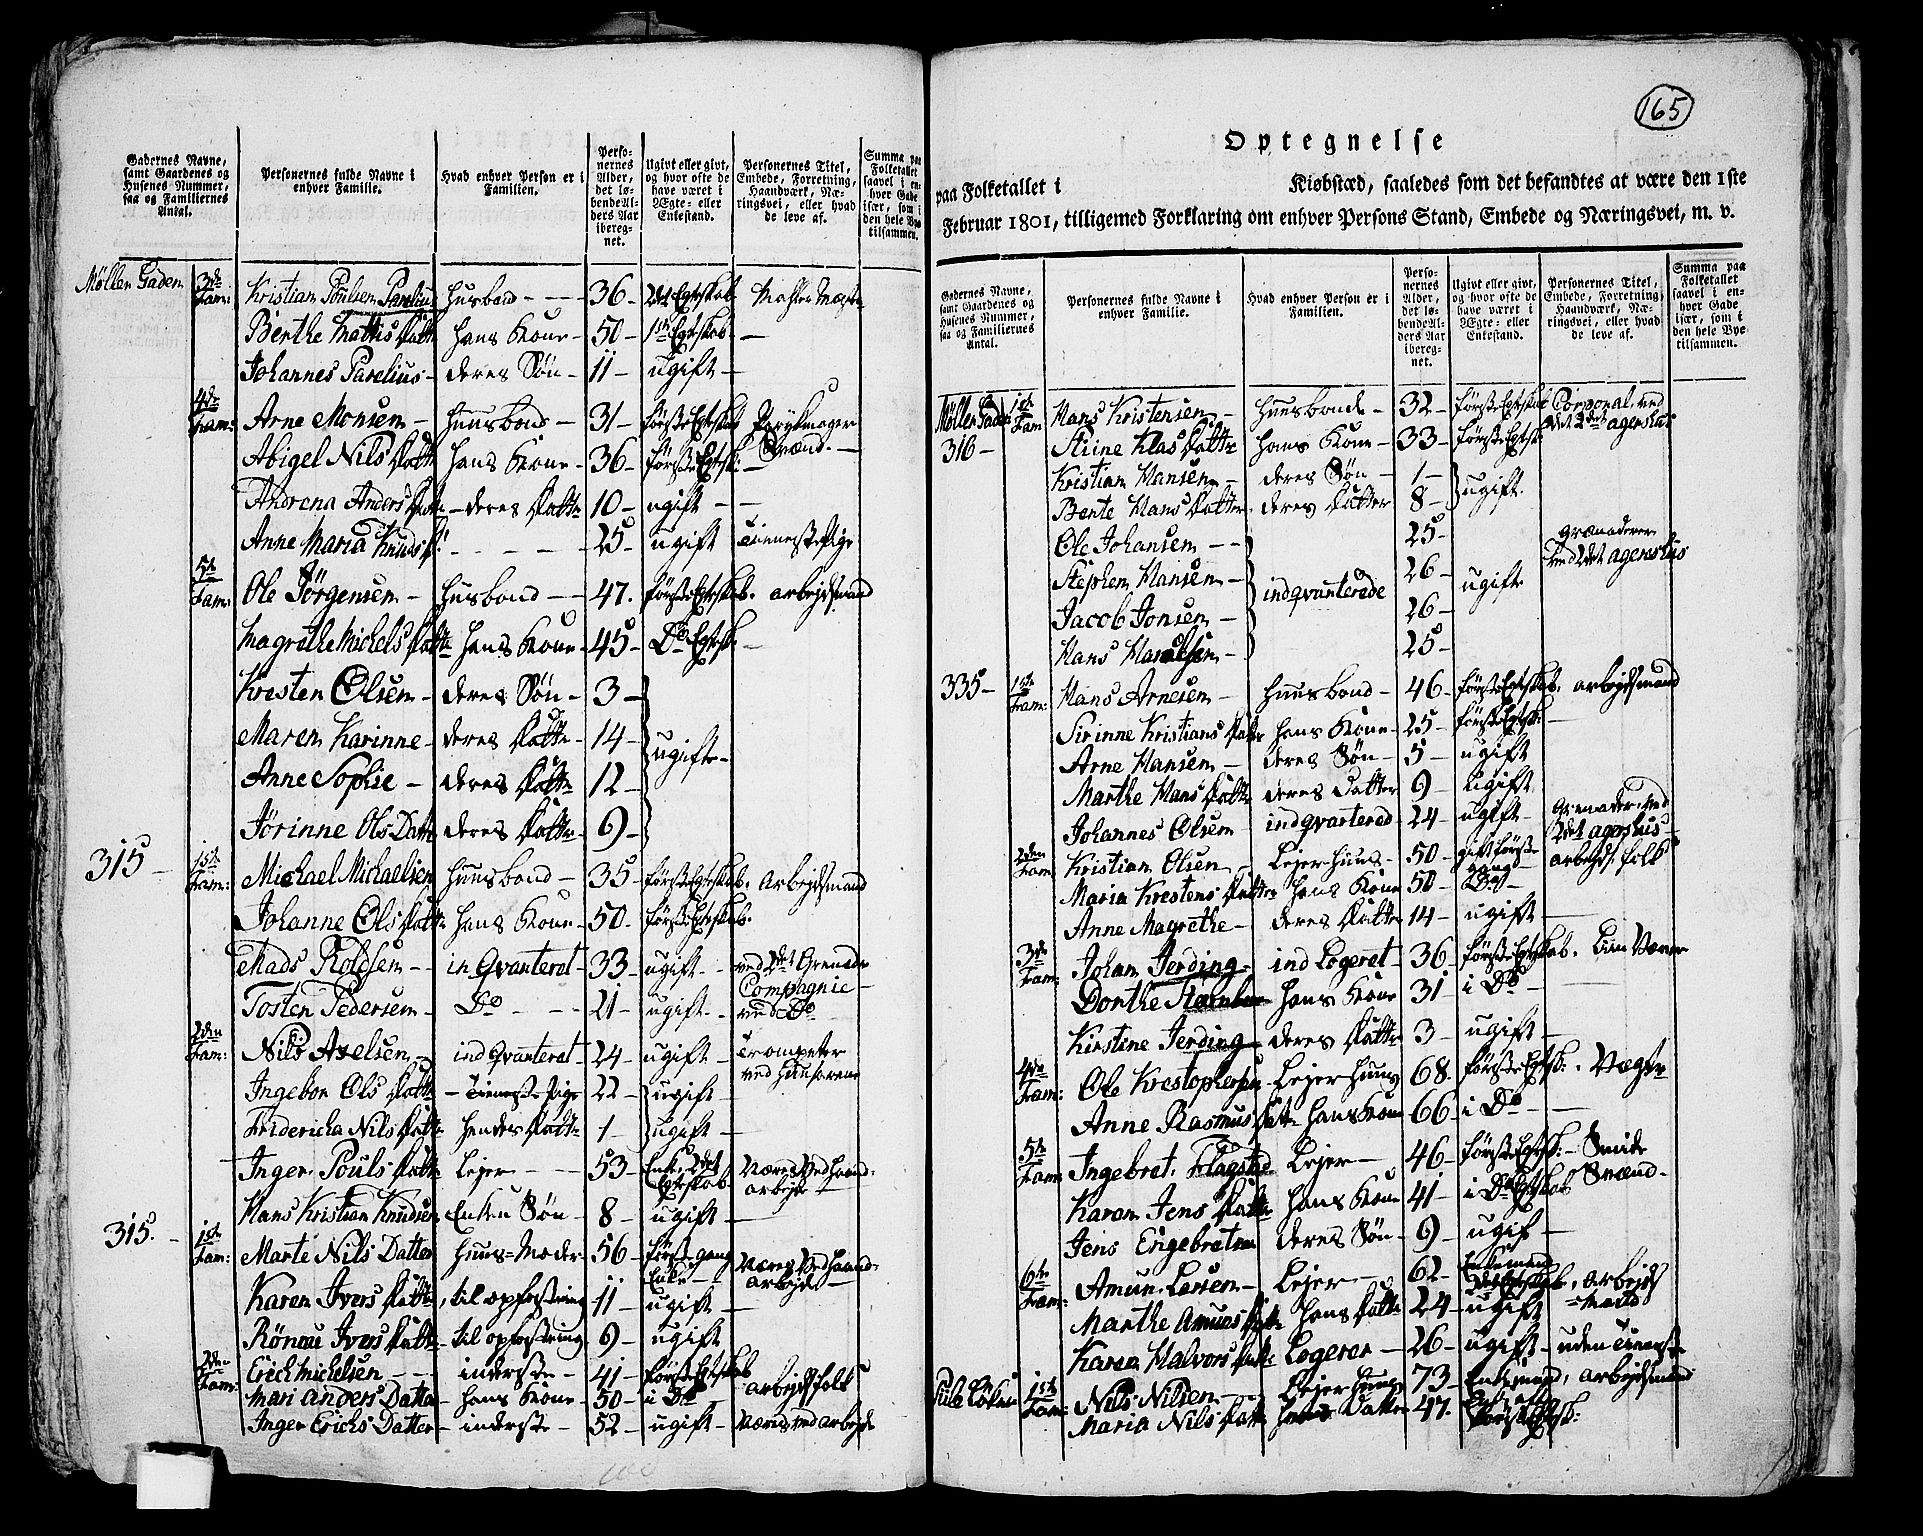 Gadernes Navne, samt Gaardenes og Husenes Nummer, saa og Familiernes Antal.
Personernes fulde Navne i enhver Familie.
Hvad enhver Person er i Familien.
Personernes Alder, det løbende Alders Aar iberegnet.
Ugivt eller givt, og hvor ofte de have været i Ægte- eller Enkestand.
Personernes Titel, Embede, Forretning, Haandværk, Næringsvei, eller hvad de leve af.
Summa paa Folketallet saavel i enhver Gade især, som i den hele Bye tilsammen.
Møller Gaden 3de Fam: Kristian Poulsen Parelius Husbond - 36 - 2det Egteskab
Berthe Mattis Datt hans Kone - 50 - 1ste Egteskab -
Johannes Parelius - deres Søn - 11 - ugift -
4de Fam: Arne Monsen - Huusbond - 31 - første Egteskab Parykmager Svend -
Abigel Nils Datt hans Kone - 36 - første Egtesk: -
Andrena Anders Datt - deres Datte - 10 - ugift -
Anne Maria Knuds D: - 25 - ugift Tieneste Pige
5te Fam: Ole Jørgensen - Husbond - 47. første Egteskab. arbejdsmand
Magrethe Michels Datt hans Kone - 45 - Do Egtesk -
Kristen Olsen - deres Søn - 3 -
Maren Karinne - deres Datte - 14 - ugifte -
Anne Sophie - deres Datte - 12 -
Jørinne Ols Datte deres Datte - 9 -
315 - 1ste Fam: Michael Michaelsen Huusbond - 35 - første Egteskab. Arbejdsmand
Johanne Ols Datte hans Kone - 50 - første Egteskab.
Mads Roldsen - - in Qvanterat - 33 - ugift - ved 2det Grenade Compagnie -
Tosten Pedersen - Do - - 21 - ugift - ved Do
2den Fam: Nils Axelsen - ind Qvanterat - 24 - ugift - Trompeter ved Husarene
Ingebor Ols Datte - Tieneste Pige 22 - ugift -
Fridericha Nils Datte hendes Datte - 1 - ugift -
Inger Pouls Datte Lejer - - 53 - Enke 2det Egteskab Nærer Ved haand arbejde
Hans Kristian Knudsen Enken Søn - 8 - ugift -
315. - 1ste Fam: Marte Nils Datter Huus=Moder - 56 - første gang Enke - Nærer Ved haand arbejde -
Karen Ivers Datte, til opfostring 11 - ugift -
Rønau Ivers Datte - til opfostring 9 - ugift
2den Fam: Erich Michelsen - inderste - 41 - første Egteskab arbejdsfolk
Mari Anders Datter hans Kone - 50 - i Do
Inger Erichs Datter - inderste - 52 - ugift - Næres ved arbejde
165
Optegnelse
paa Folketallet i Kiøbstæd, saaledes som det befandtes at være den 1ste
Februar 1801, tilligemed Forklaring om enhver Persons Stand, Embede og Næringsvei, m. v.
Gadernes Navne, samt Gaardenes og Husenes Nummer, saa og Familiernes Antal.
Personernes fulde Navne i enhver Familie.
Hvad enhver Person er i Familien.
Personernes Alder, det løbende Alders Aar iberegnet.
Ugivt eller givt, og hvor ofte de have været i Ægte- eller Enkestand.
Personernes Titel, Embede, Forretning, Haandværk, Næringsvei, eller hvad de leve af.
Summa paa Folketallet saavel i enhver Gade især, som i den hele Bye tilsammen.
Møller Gaden 1ste Fam Hans Kristensen - Huusbonde - 32 - første Egteskab Corporal ved det 2det agershus
316 - Stiine Klas Datte hans Kone - 33 - første Egtesk:
Kristian Hansen - deres Søn - 1 - ugift
Bente Hans Datter deres Datter 8 -
Ole Johansen - - 25 - Grenaderer ved 2det agershus
Stephen Hansen - indqvanterede 26 - ugifte
Jacob Jonsen - 26 -
Hans - 25 -
335 - 1ste Fam: Hans Arnesen - Huusbond - 46 - første Egteskab. arbejdsmand
Sirinne Kristians Datter hans Kone - 25 - første Egtesk: -
Arne Hansen - deres Søn - 5 - ugift
Marthe Hans Datte deres Datter 9 - ugift
Johannes Olsen - indqvarterad - 24 - ugift - Grenader ved 2det agershus -
2den Fam Kristian Olsen - Lejer huus - 50 - gift første gang arbejds folk
Maria Krestens Datter hans Kone 50 - Do -
Anne Magrethe - deres Datter 14 - ugift -
3de Fam Johan Jerding - ind Logeret - 36 første Egteskab. Liin Væver
Dorthe hans Kone 31 - i Do -
Kirstine Jerding - deres Datte 3 - ugift -
4de Fam: Ole Krestophersen Lejer huus 68. første Egtesk: . Vægter
Anne Rasmus Datt hans Kone 66 - i Do -
5te Fam Ingebret Flagstad Lejer - 46 - første Egtesk: - Smide Svend -
Karen Jens Datte hans Kone 41 - i Do Egteskab
Jens Engebretsen deres Søn - 9 - ugift -
6te Fam: Amun Larsen - Lejer - 62 - Enkemand arbejds=mand
Marthe Amuns Datt hans Datte 24 - ugift
Karen Halvors Datt: Logerer - 26 - ugift - uden Tieneste
1ste Fam: Nils Nilsen - Lejer huus 73 - Enkemand, arbejdsmand
Maria Nils Datt hans Datter 47.